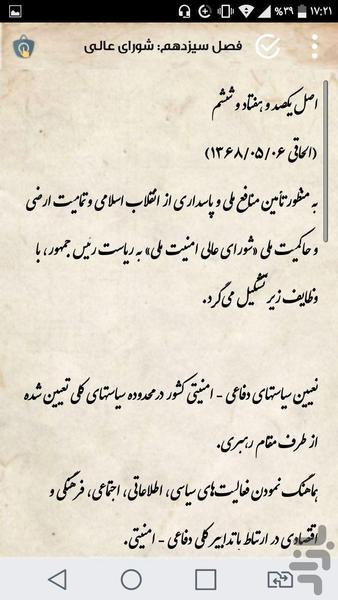 ۱۷:۲۱
%۳۹
فصل سیزدهم: شورای عالی
اصل یکصد و هفتاد و ششم
(الحاقی ۱۳۶۸/۰۵/۰۶)
به منظور تأمین منافع ملی و پاسداری از انقلاب اسلامی و تمامیت ارضی
و حاکمیت ملی «شورای عالی امنیت ملی» به ریاست رئیس جمهور، با
وظایف زیر تشکیل می‌گردد.
تعیین سیاستهای دفاعی - امنیتی کشور در محدوده سیاستهای کلی تعیین شده
از طرف مقام رهبری.
هماهنگ نمودن فعالیت‌های سیاسی، اطلاعاتی، اجتماعی، فرهنگی و
اقتصادی در ارتباط با تدابیر کلی دفاعی - امنیتی.